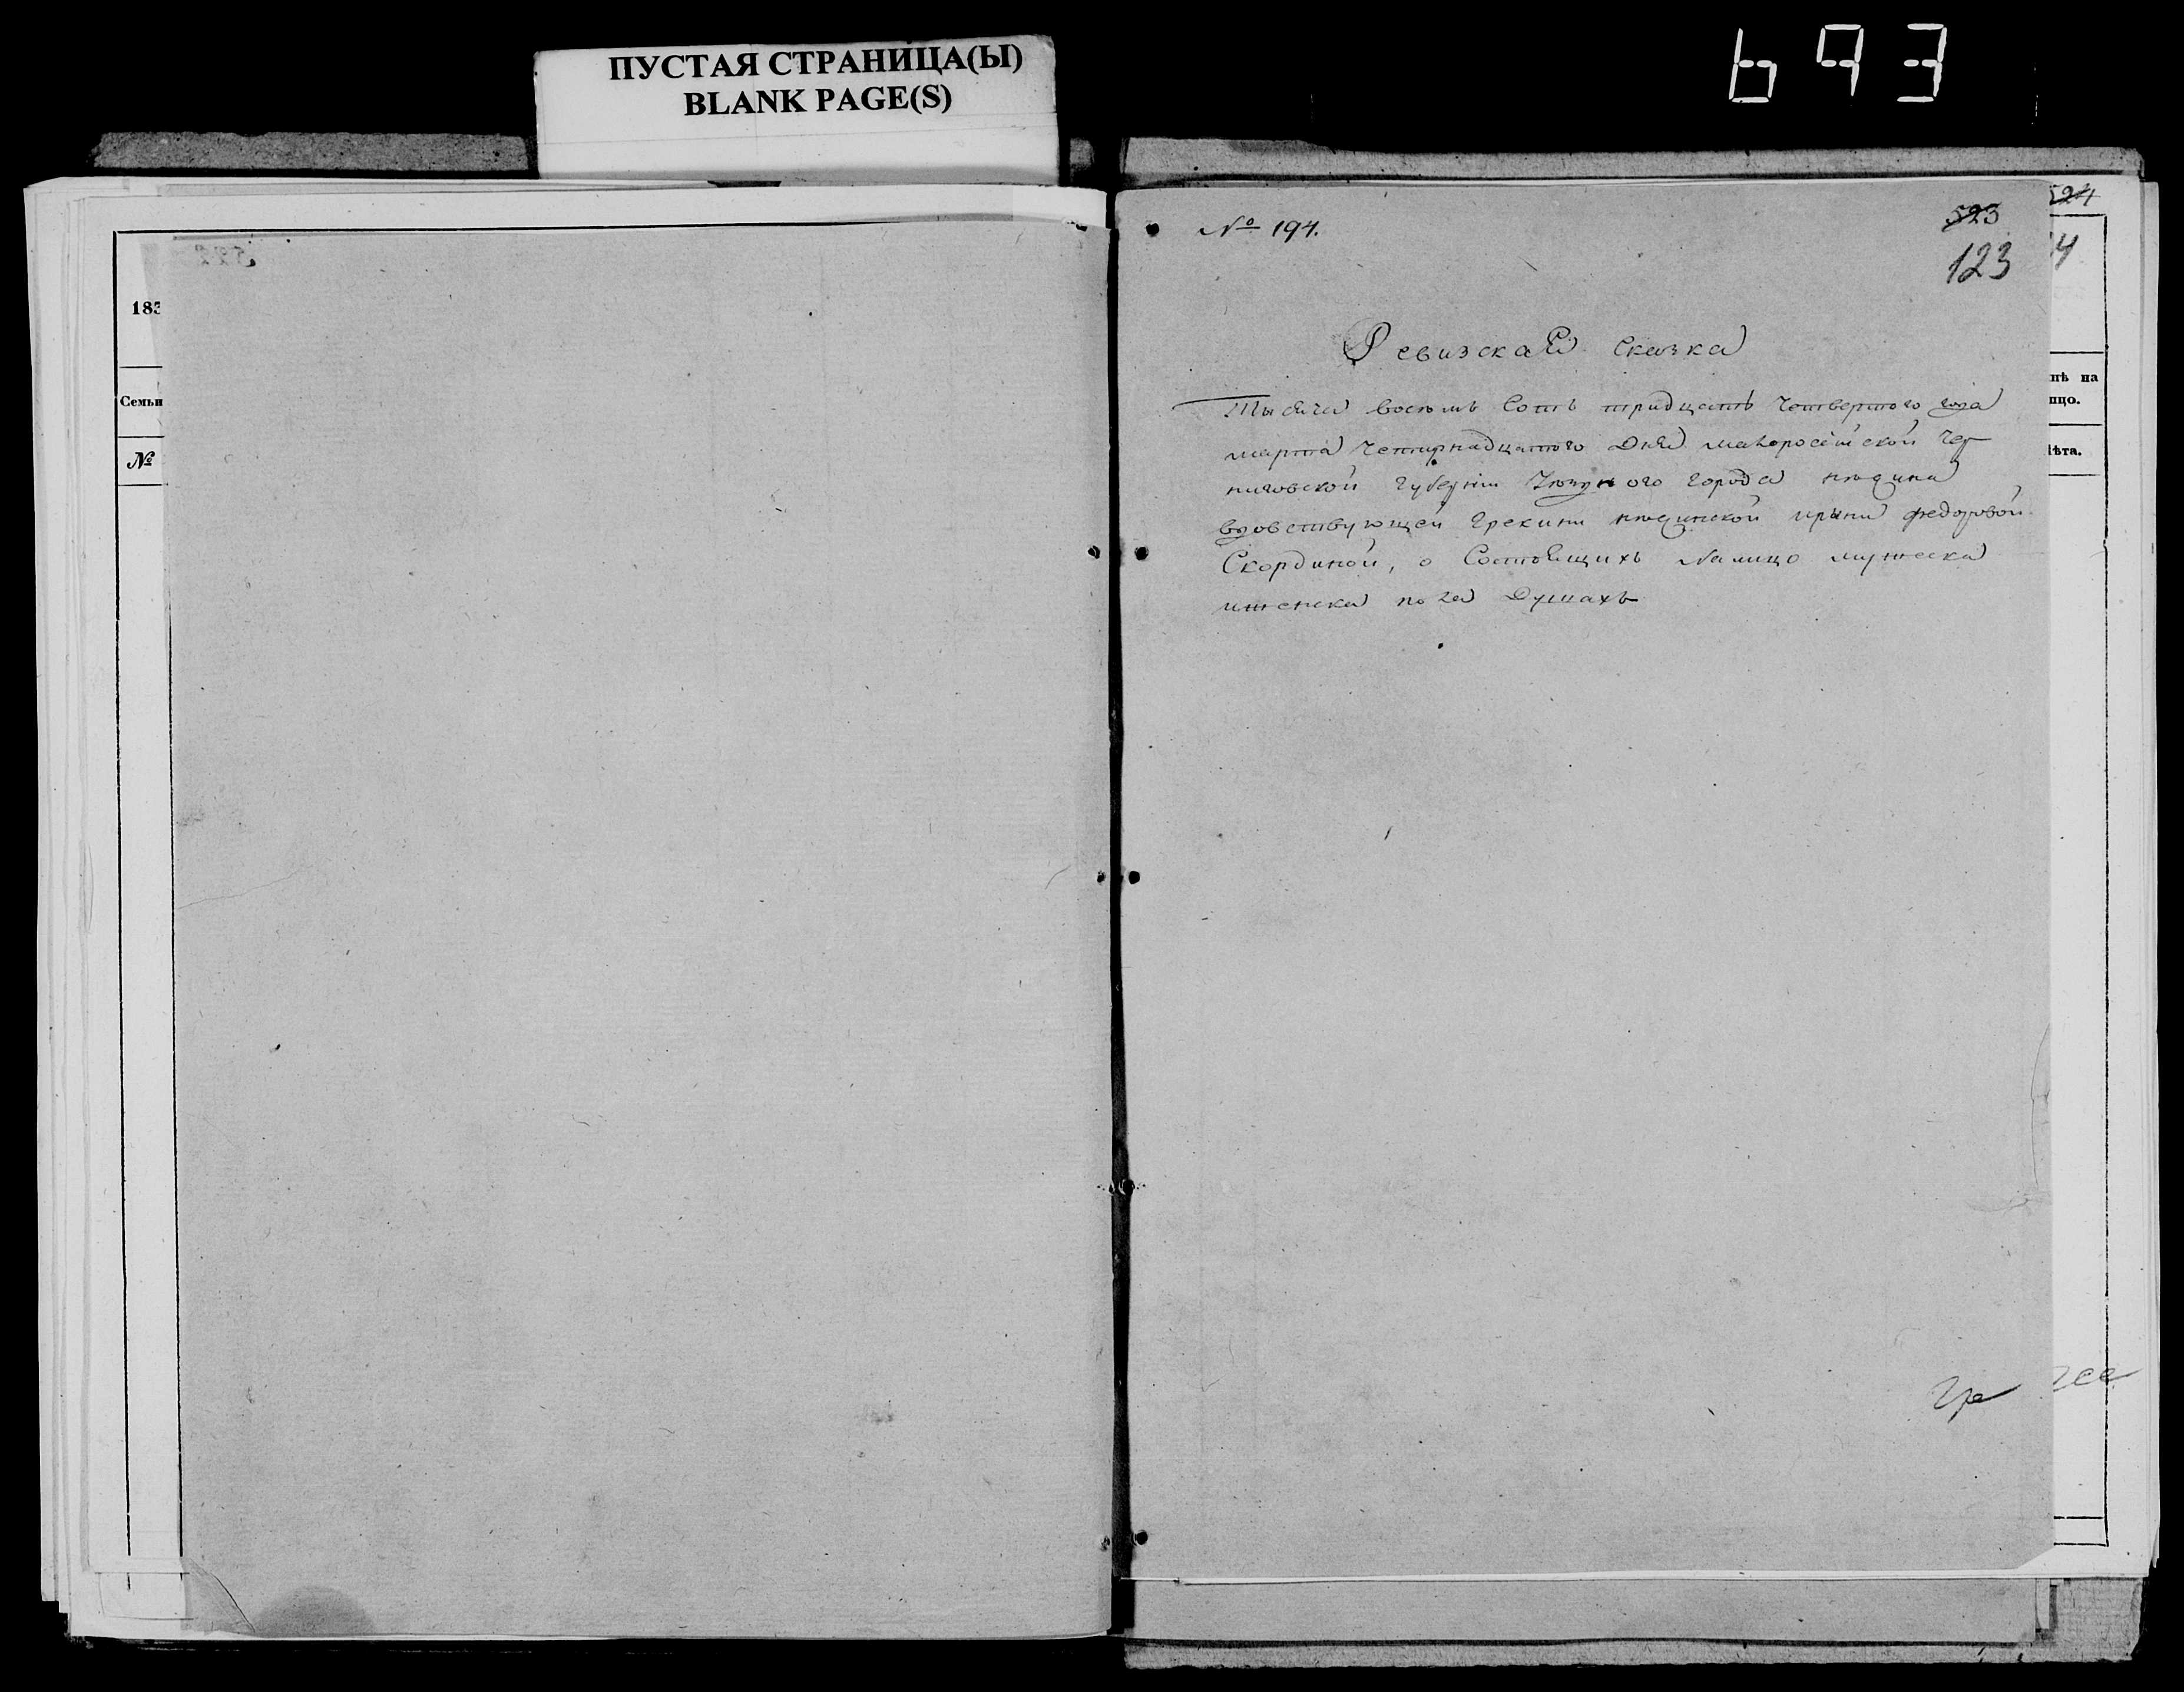 ПУСТАЯ СТРАНИЦА(Ы)
BLANK PAGE(S)
693
183
Семьи
№
№ 194.
523
123
524
Ревизская Сказка
Тысяча восемь Сотъ тридцать Четвертого года
марта Четырнадцатого Дня малоросійской Чер
ниговской губерніи города нѣжина
вдовствующей Грекини нѣжинской ирыни федоровой
Скординой, о Состоящихъ Налицо мужеска
иженска пола Душахъ
нѣ на
ицо.
Лѣта.